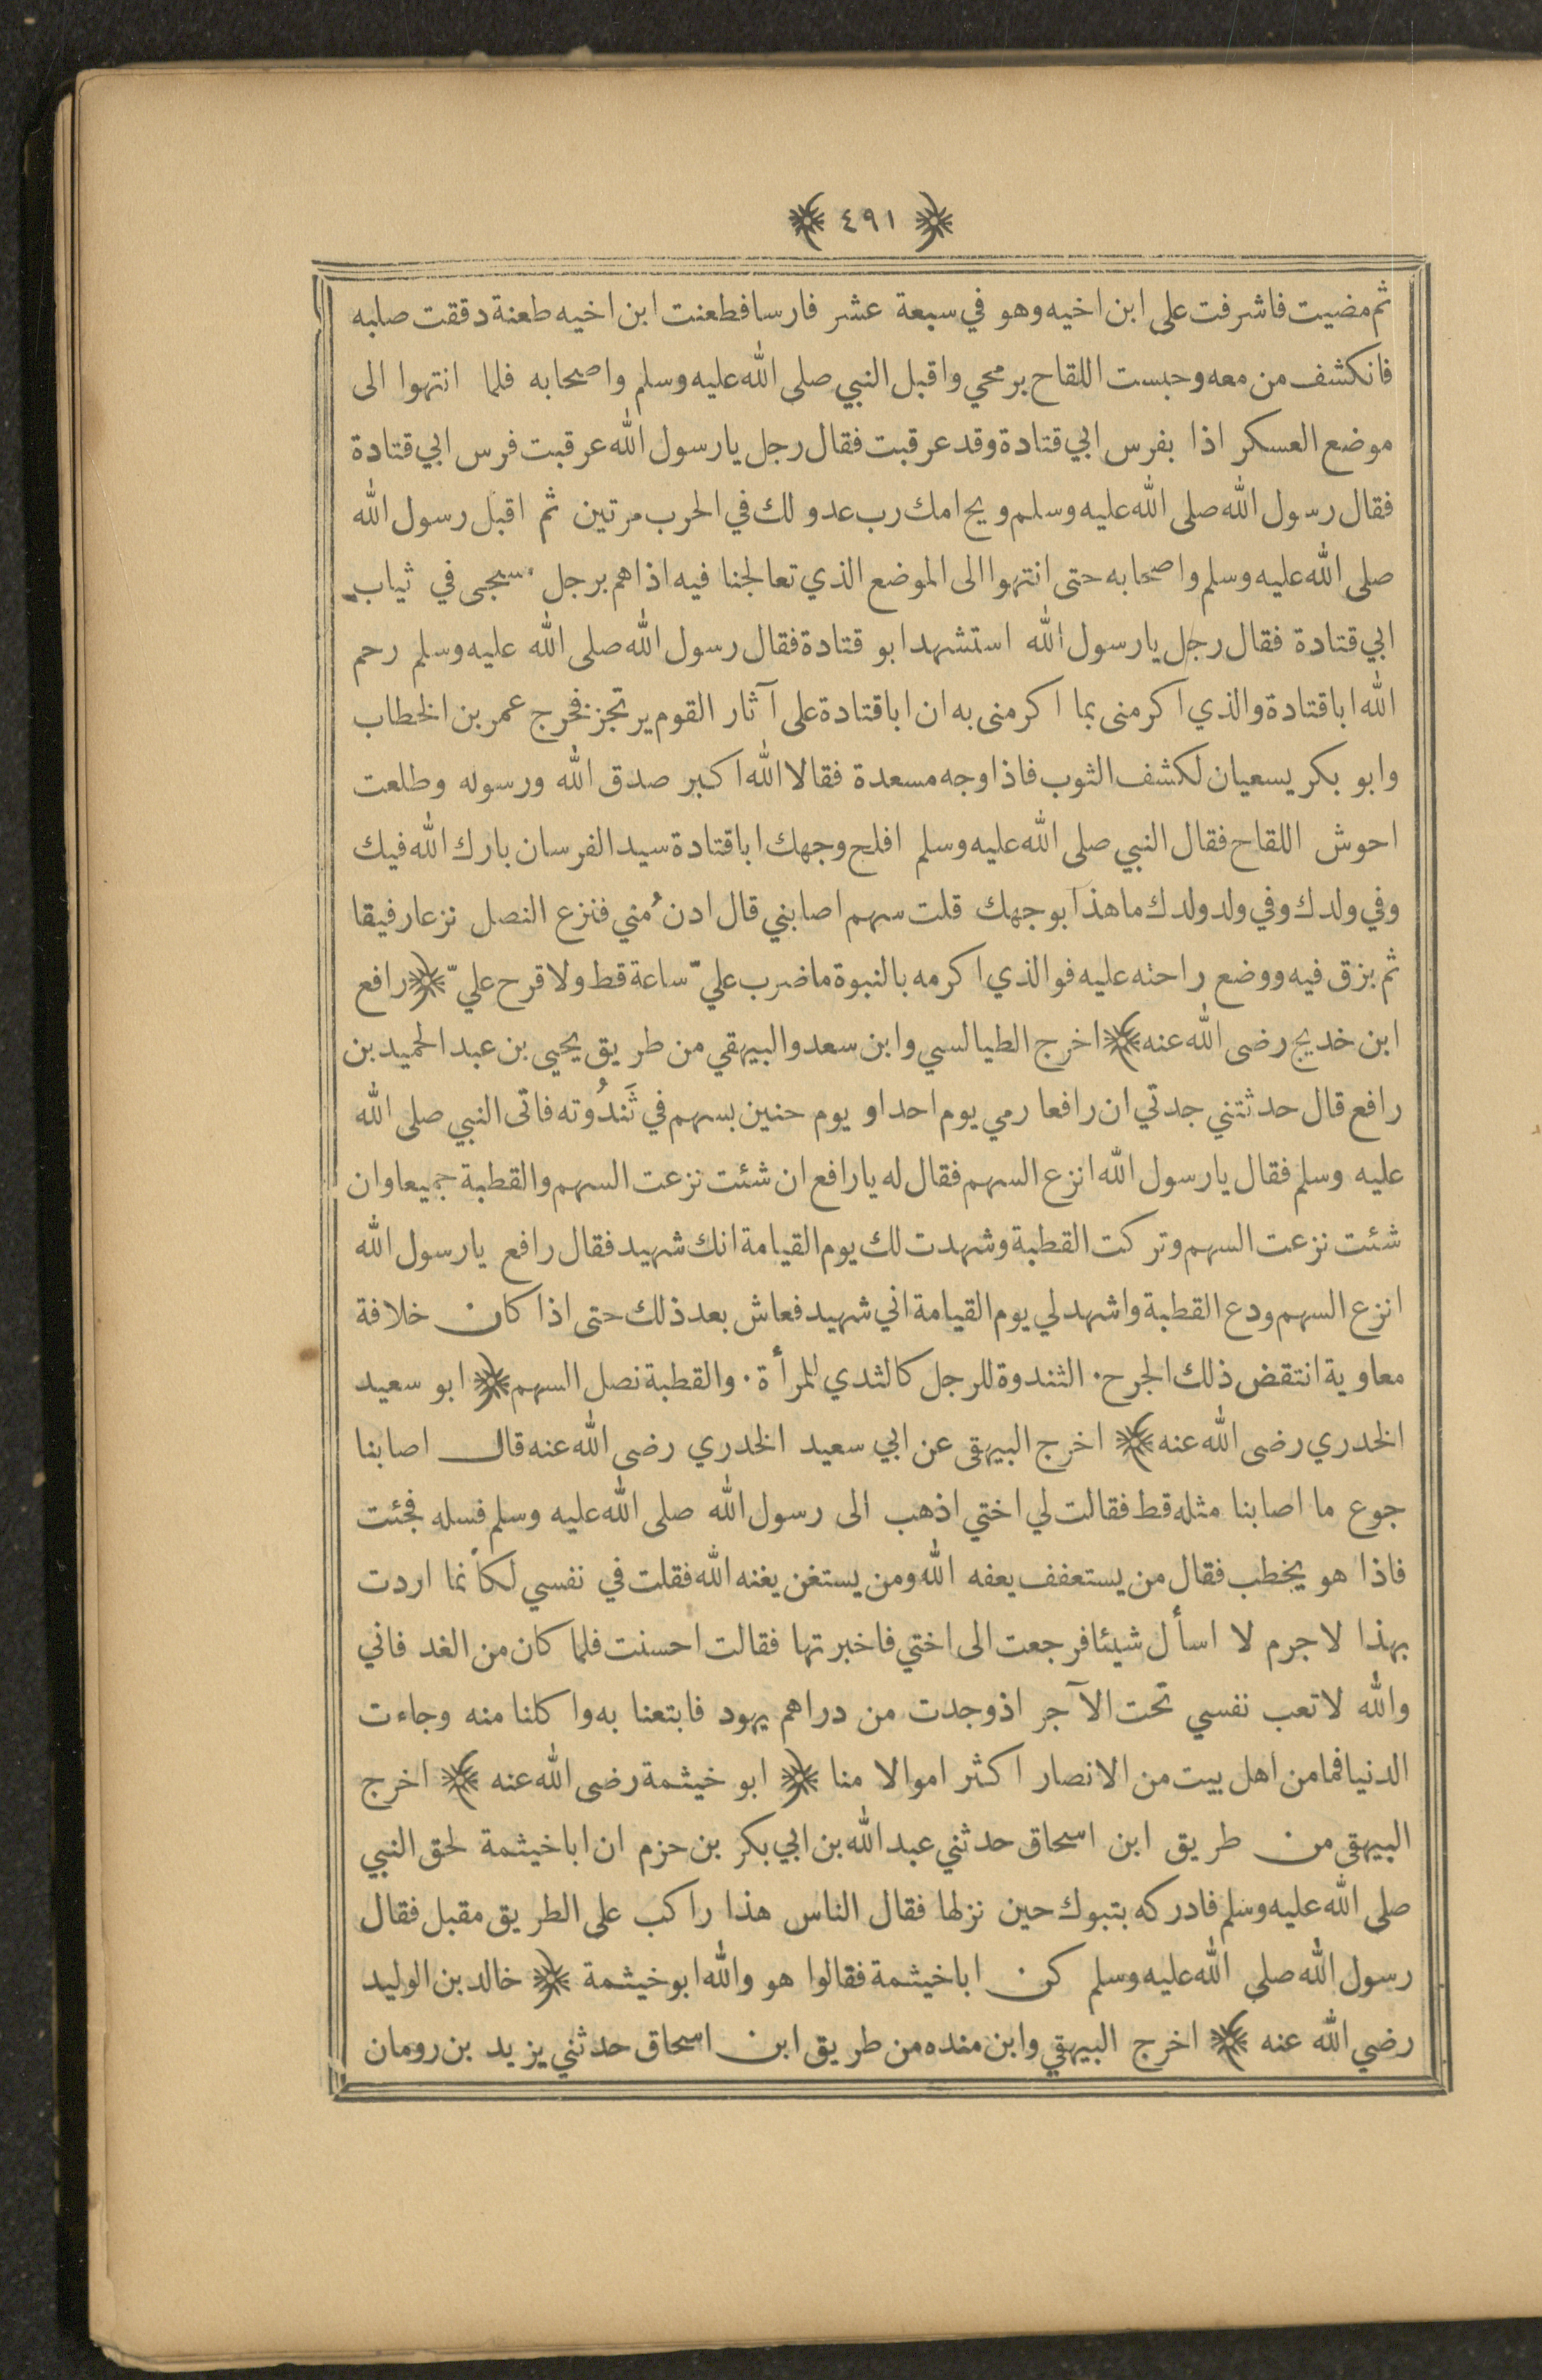 ﴿ ٤٩١ ﴾
ثم مضيت فاشرفت على ابن اخيه وهو في سبعة عشر فارسا فطعنت ابن اخيه طعنة دققت صلبه
فانكشف من معه وحبست اللقاح برمحي واقبل النبي صلى الله عليه وسلم واصحابه فلما انتهوا الى
موضع العسكر اذا بفرس ابي قتادة وقد عرقبت فقال رجل يا رسول الله عرقبت فرس ابي قتادة
فقال رسول الله صلى الله عليه وسلم ويح امك رب عدو لك في الحرب مرتين ثم اقبل رسول الله
صلى الله عليه وسلم واصحابه حتى انتهوا الى الموضع الذي تعالجنا فيه اذا هم برجل مسجى في ثياب
ابي قتادة فقال رجل يا رسول الله استشهد ابو قتادة فقال رسول الله صلى الله عليه وسلم رحم
الله ابا قتادة والذي اكرمنى بما اكرمنى به ان ابا قتادة على آثار القوم يرتجز فخرج عمر بن الخطاب
وابو بكر يسعيان لكشف الثوب فاذا وجه مسعدة فقالا الله اكبر صدق الله ورسوله وطلعت
احوش اللقاح فقال النبي صلى الله عليه وسلم افلح وجهك ابا قتادة سيد الفرسان بارك الله فيك
وفي ولدك وفي ولد ولدك ما هذا بوجهك قلت سهم اصابني قال ادنُ مني فنزع النصل نزعا رفيقا
ثم بزق فيه ووضع راحته عليه فوالذي اكرمه بالنبوة ما ضرب عليّ ساعة قط ولا قرح عليّ ﴿ رافع
ابن خديج رضى الله عنه ﴾ اخرج الطيالسي وابن سعد والبيهقي من طريق يحيى بن عبد الحميد بن
رافع قال حدثتني جدتي ان رافعا رمي يوم احد او يوم حنين بسهم في ثَندُوته فاتى النبي صلى الله
عليه وسلم فقال يا رسول الله انزع السهم فقال له يا رافع ان شئت نزعت السهم والقطبة جميعا وان
شئت نزعت السهم وتركت القطبة وشهدت لك يوم القيامة انك شهيد فقال رافع يا رسول الله
انزع السهم ودع القطبة واشهد لي يوم القيامة اني شهيد فعاش بعد ذلك حتى اذا كان خلافة
معاوية انتقض ذلك الجرح . الثندوة للرجل كالثدي للمرأة . والقطبة نصل السهم ﴿ ابو سعيد
الخدري رضى الله عنه ﴾ اخرج البيهقى عن ابي سعيد الخدري رضى الله عنه قال اصابنا
جوع ما اصابنا مثله قط فقالت لي اختي اذهب الى رسول الله صلى الله عليه وسلم فسله فجئت
فاذا هو يخطب فقال من يستعفف يعفه الله ومن يستغن يغنه الله فقلت في نفسي لكأنما اردت
بهذا لا جرم لا اسأل شيئا فرجعت الى اختي فاخبرتها فقالت احسنت فلما كان من الغد فاني
والله لاتعب نفسي تحت الآجر اذ وجدت من دراهم يهود فابتعنا به واكلنا منه وجاءت
الدنيا فما من اهل بيت من الانصار اكثر اموالا منا ﴿ ابو خيثمة رضى الله عنه ﴾ اخرج
البيهقى من طريق ابن اسحاق حدثني عبد الله بن ابي بكر بن حزم ان ابا خيثمة لحق النبي
صلى الله عليه وسلم فادركه بتبوك حين نزلها فقال الناس هذا راكب على الطريق مقبل فقال
رسول الله صلى الله عليه وسلم كن ابا خيثمة فقالوا هو والله ابو خيثمة ﴿ خالد بن الوليد
رضي الله عنه ﴾ اخرج البيهقي وابن منده من طريق ابن اسحاق حدثني يزيد بن رومان